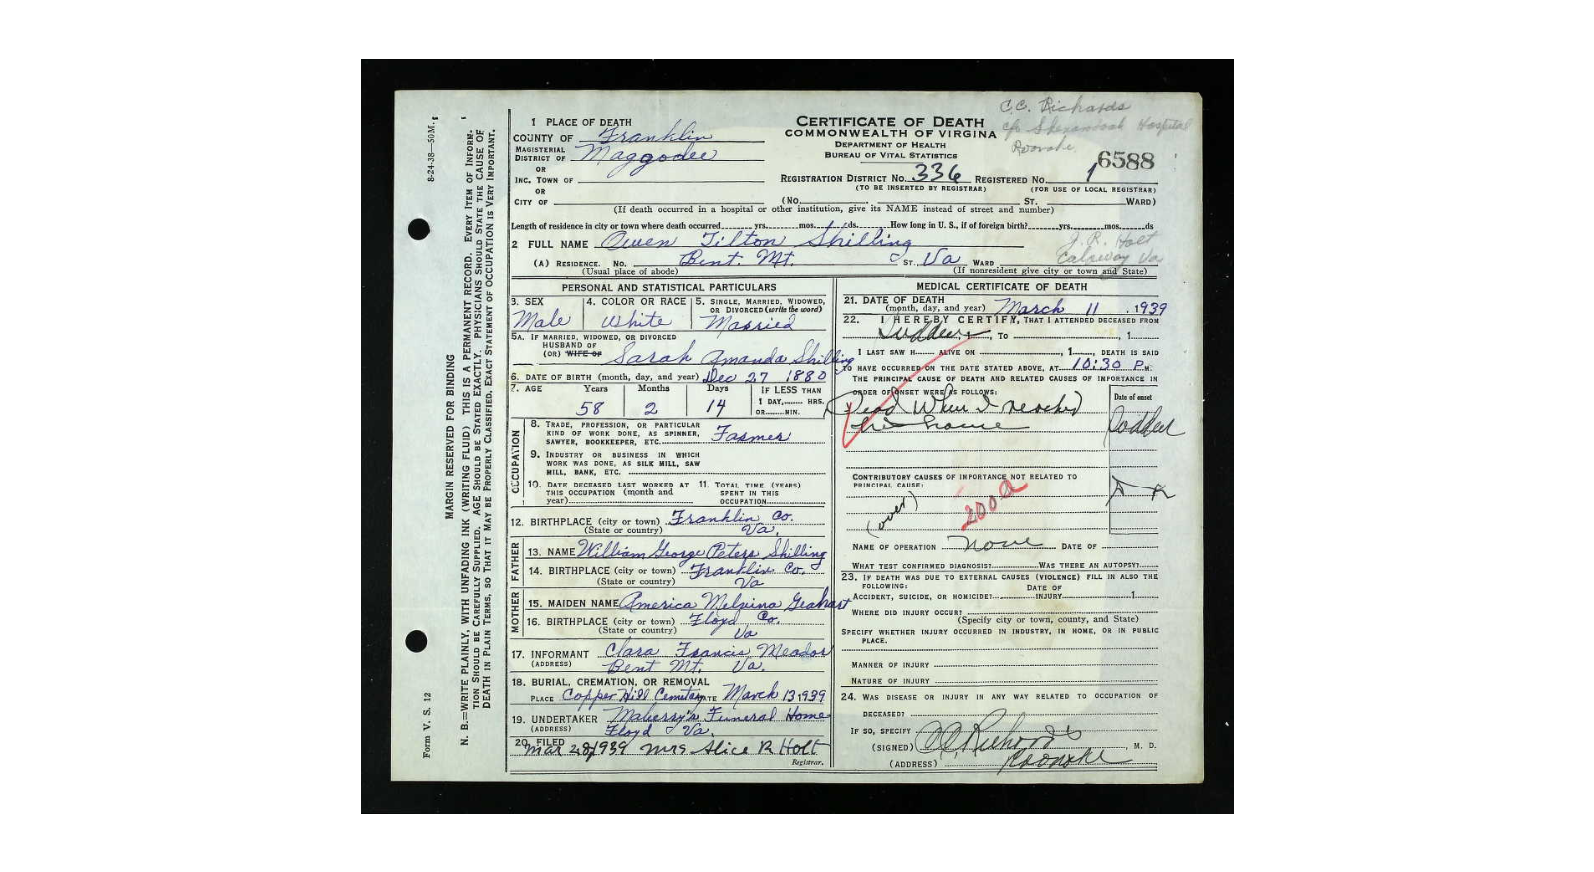 8-24-38—50M.
MARGIN RESERVED FOR BINDING
N. B.—WRITE PLAINLY, WITH UNFADING INK (WRITING FLUID) THIS IS A PERMANENT RECORD. EVERY ITEM OF INFORM-
TION SHOULD BE CAREFULLY SUPPLIED. AGE SHOULD BE STATED EXACTLY. PHYSICIANS SHOULD STATE THE CAUSE OF
DEATH IN PLAIN TERMS, SO THAT IT MAY BE PROPERLY CLASSIFIED. EXACT STATEMENT OF OCCUPATION IS VERY IMPORTANT.
Form V. S. 12
C.C. Richards
c/o Shenandoah Hospital
Roanoke
1 PLACE OF DEATH
COUNTY OF Franklin
MAGISTERIAL DISTRICT OF Maggodee
OR
INC. TOWN OF
OR
CITY OF
CERTIFICATE OF DEATH
COMMONWEALTH OF VIRGINIA
DEPARTMENT OF HEALTH
BUREAU OF VITAL STATISTICS
6588
REGISTRATION DISTRICT NO. 336 REGISTERED NO. 1
(TO BE INSERTED BY REGISTRAR) (FOR USE OF LOCAL REGISTRAR)
(No. ST. WARD)
(If death occurred in a hospital or other institution, give its NAME instead of street and number)
Length of residence in city or town where death occurred yrs. mos. ds. How long in U. S., if of foreign birth? yrs. mos. ds
2 FULL NAME Owen Tilton Shilling
J. R. Holt
Calaway Va
(A) RESIDENCE. No. Bent Mt. ST. Va WARD
(Usual place of abode) (If nonresident give city or town and State)
PERSONAL AND STATISTICAL PARTICULARS
3. SEX Male
4. COLOR OR RACE White
5. SINGLE, MARRIED, WIDOWED, OR DIVORCED (write the word) Married
5A. IF MARRIED, WIDOWED, OR DIVORCED
HUSBAND OF
(OR) WIFE OF Sarah Amanda Shilling
6. DATE OF BIRTH (month, day, and year) Dec 27 1880
7. AGE Years 58 Months 2 Days 14 IF LESS THAN 1 DAY, HRS. OR MIN.
OCCUPATION
8. TRADE, PROFESSION, OR PARTICULAR
KIND OF WORK DONE, AS SPINNER,
SAWYER, BOOKKEEPER, ETC. Farmer
9. INDUSTRY OR BUSINESS IN WHICH
WORK WAS DONE, AS SILK MILL, SAW
MILL, BANK, ETC.
10. DATE DECEASED LAST WORKED AT
THIS OCCUPATION (month and
year)
11. TOTAL TIME (YEARS)
SPENT IN THIS
OCCUPATION
12. BIRTHPLACE (city or town) Franklin Co.
(State or country) Va.
FATHER
13. NAME William George Peters Shilling
14. BIRTHPLACE (city or town) Franklin Co.
(State or country) Va
MOTHER
15. MAIDEN NAME America Melvina Geahart
16. BIRTHPLACE (city or town) Floyd Co.
(State or country) Va
17. INFORMANT Clara Francis Meador
(ADDRESS) Bent Mt. Va.
18. BURIAL, CREMATION, OR REMOVAL
PLACE Copper Hill Cemetary DATE March 13 1939
19. UNDERTAKER Maberry's Funeral Home
(ADDRESS) Floyd Va.
20. FILED Mar 28, 1939 Mrs Alice R Holt
Registrar.
MEDICAL CERTIFICATE OF DEATH
21. DATE OF DEATH
(month, day, and year) March 11, 1939
22. I HEREBY CERTIFY, THAT I ATTENDED DECEASED FROM
, TO , 1
I LAST SAW H ALIVE ON , 1 , DEATH IS SAID
TO HAVE OCCURRED ON THE DATE STATED ABOVE, AT 10:30 P M.
THE PRINCIPAL CAUSE OF DEATH AND RELATED CAUSES OF IMPORTANCE IN
ORDER OF ONSET WERE AS FOLLOWS:
Date of onset
Dead When I reached
his house
CONTRIBUTORY CAUSES OF IMPORTANCE NOT RELATED TO
PRINCIPAL CAUSE:
(over)
200a
NAME OF OPERATION None DATE OF
WHAT TEST CONFIRMED DIAGNOSIS? WAS THERE AN AUTOPSY?
23. IF DEATH WAS DUE TO EXTERNAL CAUSES (VIOLENCE) FILL IN ALSO THE
FOLLOWING:
ACCIDENT, SUICIDE, OR HOMICIDE? DATE OF INJURY 1
WHERE DID INJURY OCCUR?
(Specify city or town, county, and State)
SPECIFY WHETHER INJURY OCCURRED IN INDUSTRY, IN HOME, OR IN PUBLIC
PLACE.
MANNER OF INJURY
NATURE OF INJURY
24. WAS DISEASE OR INJURY IN ANY WAY RELATED TO OCCUPATION OF
DECEASED?
IF SO, SPECIFY
(SIGNED) C.C. Richards, M. D.
(ADDRESS) Roanoke